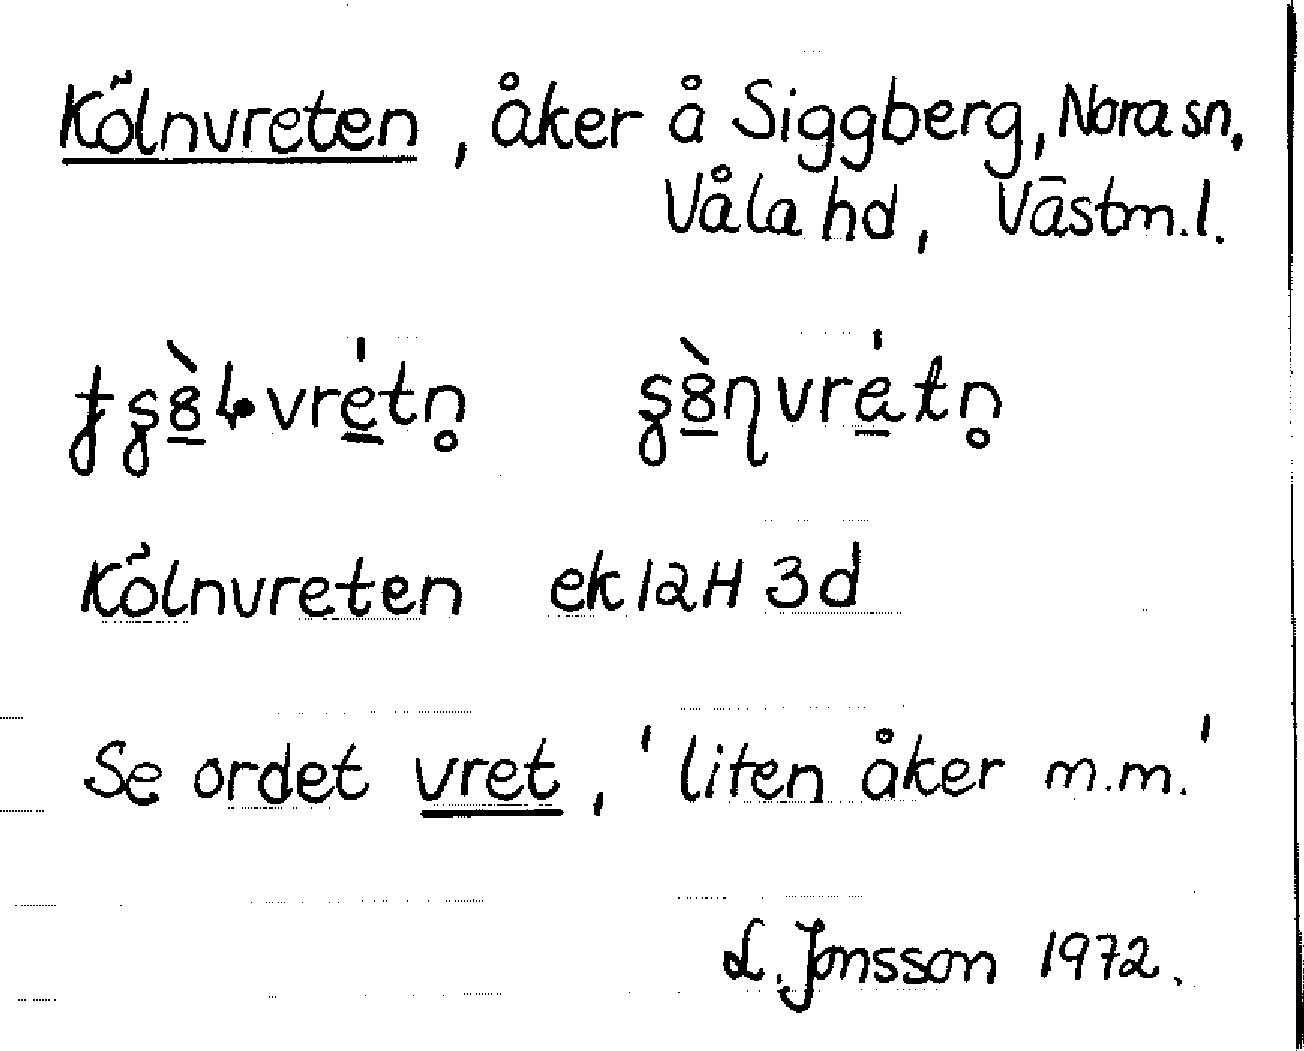 Kölnvreten, åker å Siggberg, Nora sn,
Våla hd, Västm. l.
Kölnvreten ek 12H 3d
Se ordet vret, 'liten åker m.m.'
L. Jonsson 1972.